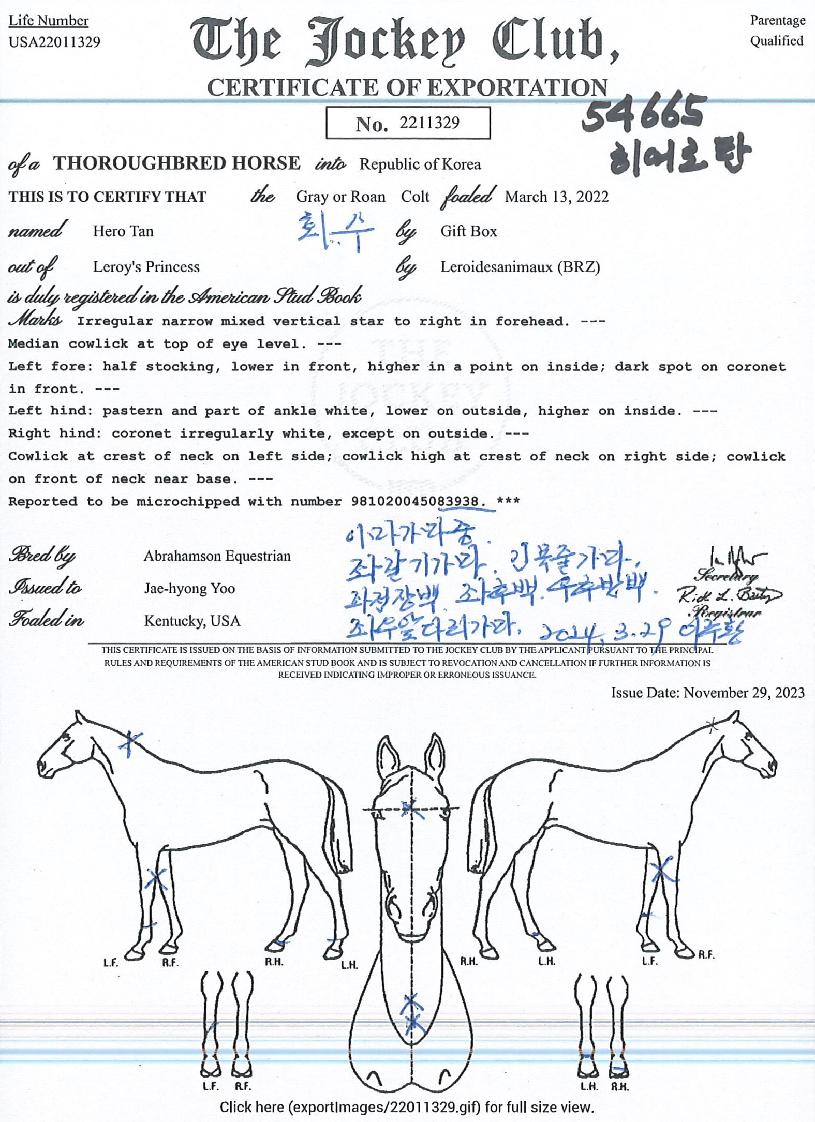 Life Number
USA22011329
Parentage
Qualified
The Jockey Club,
CERTIFICATE OF EXPORTATION
No. 2211329
54665
히어로탄
of a THOROUGHBRED HORSE into Republic of Korea
THIS IS TO CERTIFY THAT the Gray or Roan Colt foaled March 13, 2022
named Hero Tan by Gift Box
회.수
out of Leroy's Princess by Leroidesanimaux (BRZ)
is duly registered in the American Stud Book
Marks Irregular narrow mixed vertical star to right in forehead. ---
Median cowlick at top of eye level. ---
Left fore: half stocking, lower in front, higher in a point on inside; dark spot on coronet
in front. ---
Left hind: pastern and part of ankle white, lower on outside, higher on inside. ---
Right hind: coronet irregularly white, except on outside. ---
Cowlick at crest of neck on left side; cowlick high at crest of neck on right side; cowlick
on front of neck near base. ---
Reported to be microchipped with number 981020045083938. ***
THE
JOCKEY
이마가마중.
Bred by Abrahamson Equestrian
좌갈기가마.
Secretary
Issued to Jae-hyong Yoo
좌후백.
Registrar
Foaled in Kentucky, USA
좌우앞다리가마. 2024.3.29
THIS CERTIFICATE IS ISSUED ON THE BASIS OF INFORMATION SUBMITTED TO THE JOCKEY CLUB BY THE APPLICANT PURSUANT TO THE PRINCIPAL
RULES AND REQUIREMENTS OF THE AMERICAN STUD BOOK AND IS SUBJECT TO REVOCATION AND CANCELLATION IF FURTHER INFORMATION IS
RECEIVED INDICATING IMPROPER OR ERRONEOUS ISSUANCE.
Issue Date: November 29, 2023
L.F. R.F. R.H. L.H. R.H. L.H. L.F. R.F.
L.F. R.F. L.H. R.H.
Click here (exportImages/22011329.gif) for full size view.